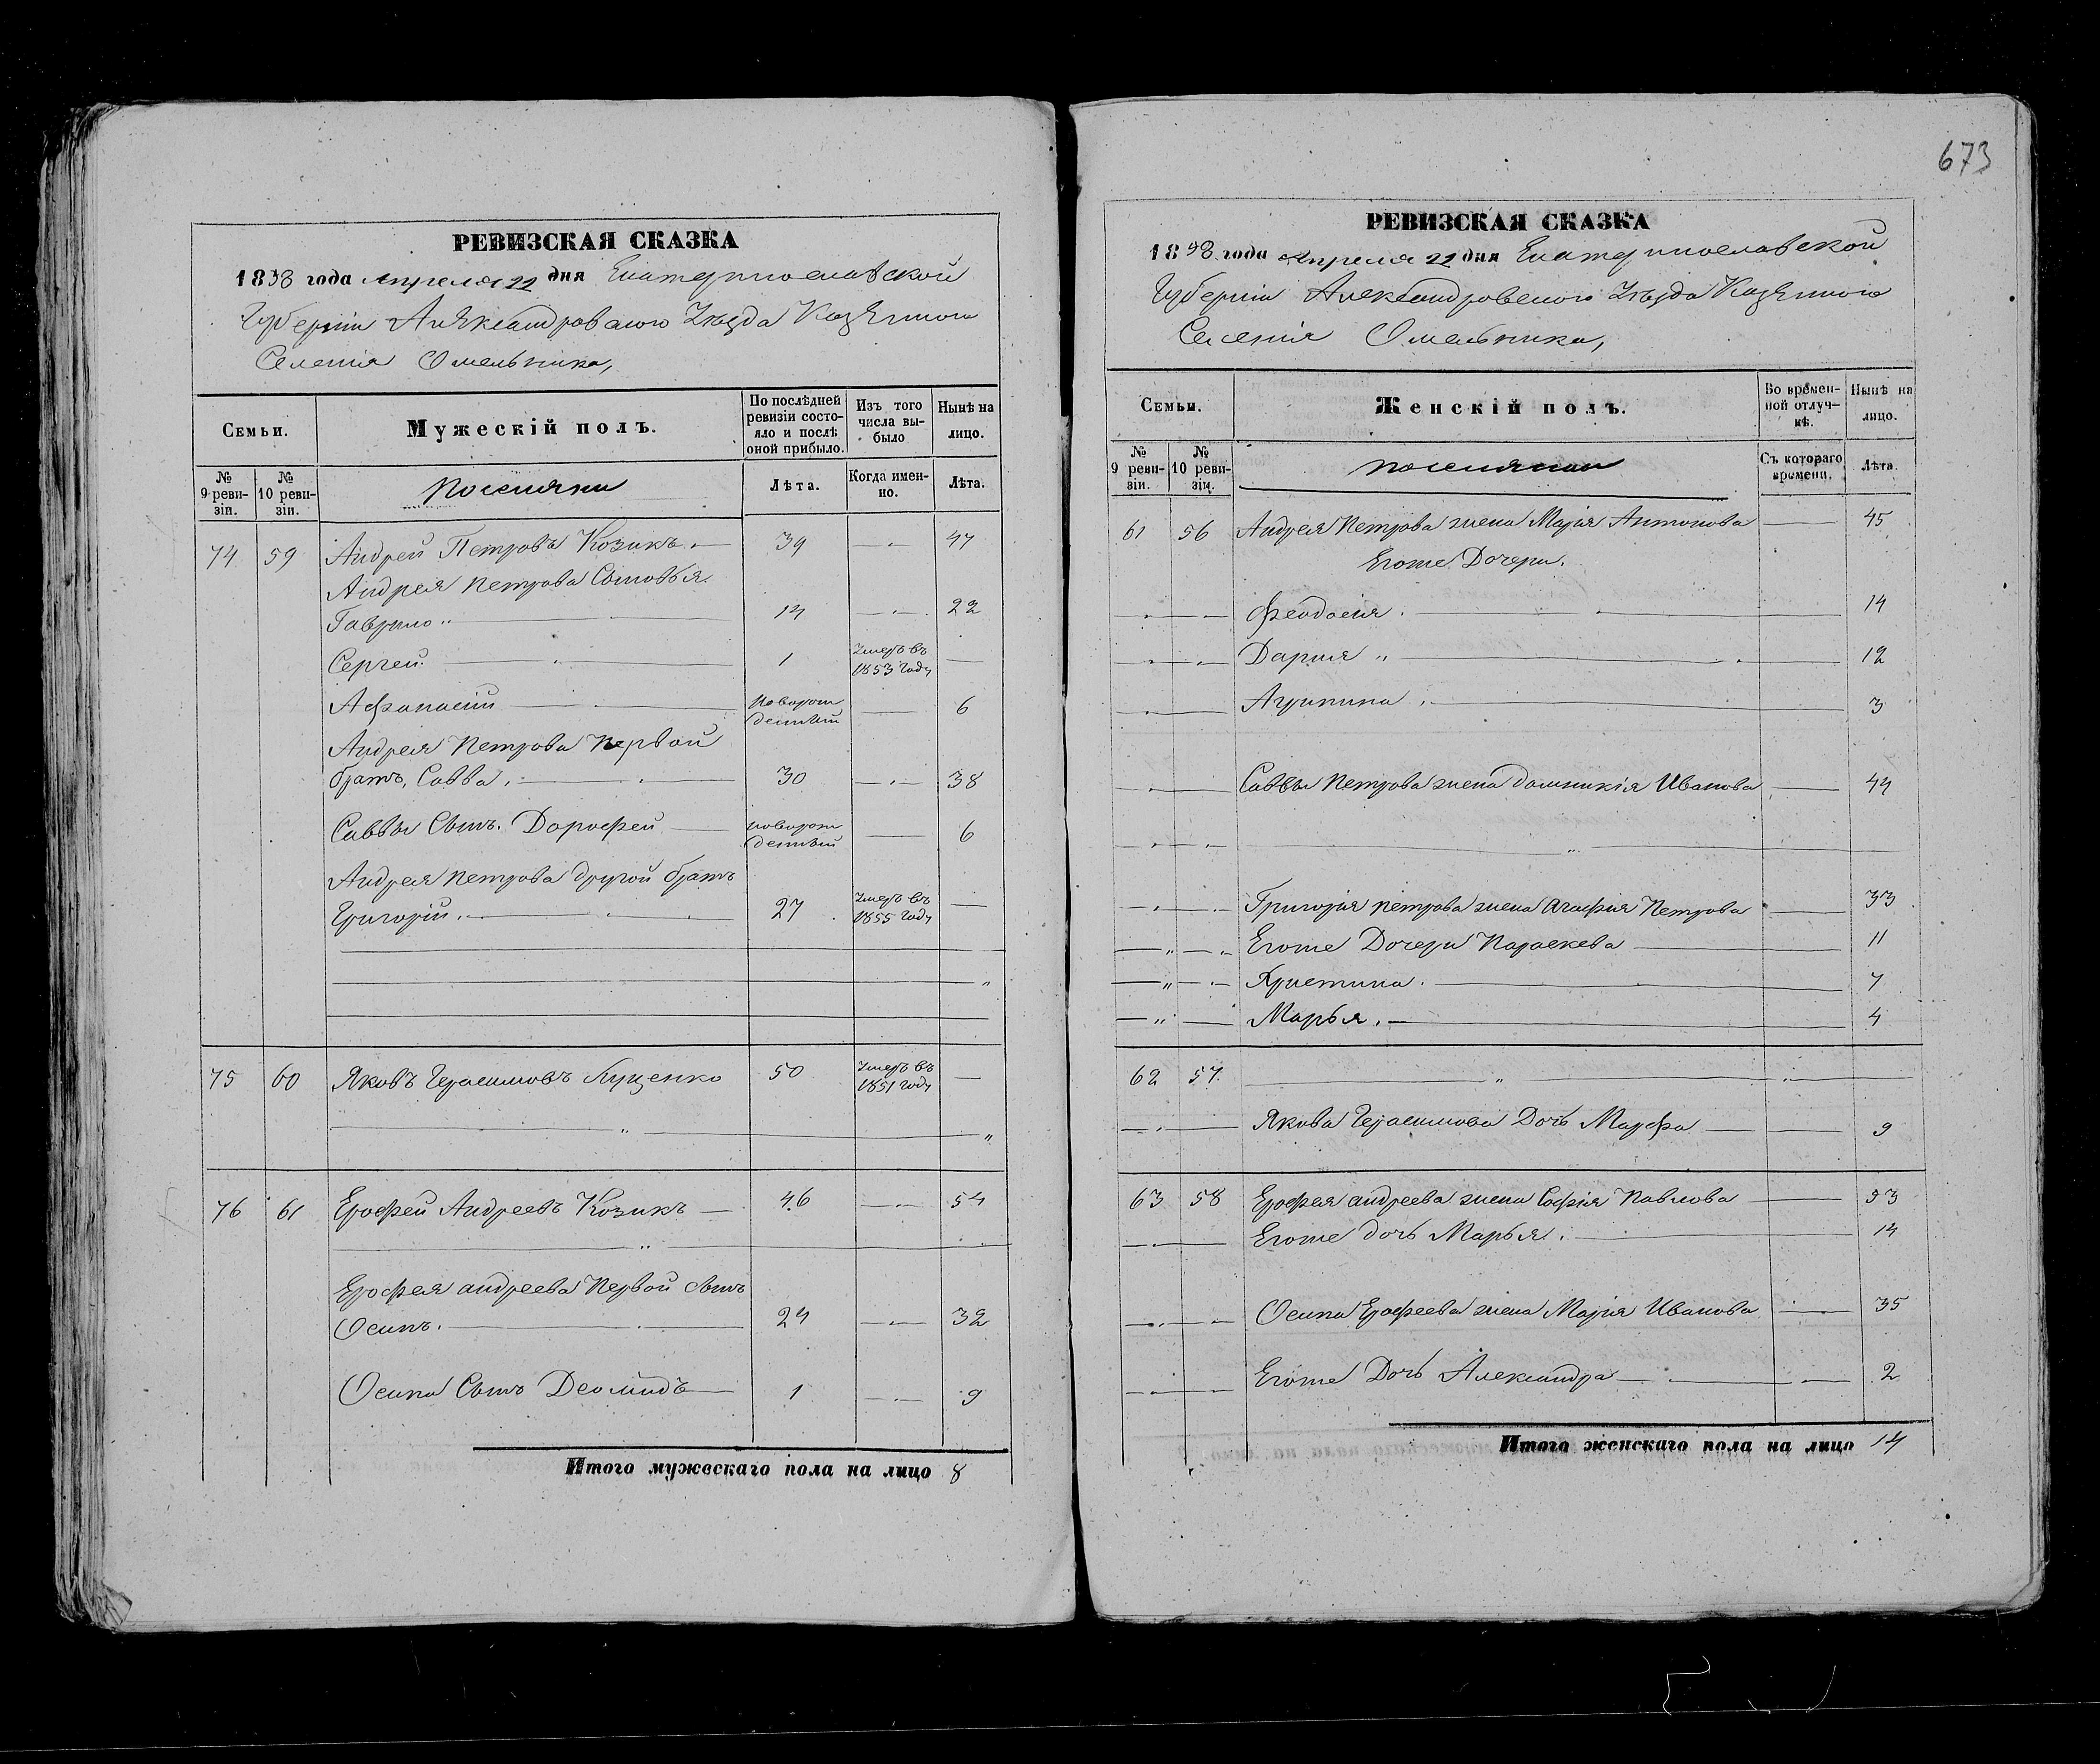 РЕВИЗСКАЯ СКАЗКА
1858 года Апреля 22 дня Екатеринославской
Губерніи Александровского Уѣзда Казенного
Селенія Омельника,
Семьи.
Мужескій полъ.
По послѣдней ревизіи состояло и послѣ оной прибыло.
Изъ того числа выбыло
Ныне на лицо.
№ 9 ревизіи.
№ 10 ревизіи.
Поселяни
Лѣта.
Когда именно.
Лѣта.
74 59 Андрей Петровъ Козикъ. 39 47
Андрея Петрова Сыновья
Гаврило 14 22
Сергей 1 Умеръ въ 1853 году
Афанасій новорожденный 6
Андрея Петрова Первой
братъ, Савва. 30 38
Саввы Сынъ. Дорофей новорожденный 6
Андрея Петрова другой братъ
Григорій. 27 Умеръ въ 1855 году
75 60 Яковъ Герасимовъ Луценко 50 Умеръ въ 1851 году
76 61 Ерофей Андреевъ Козикъ 46 54
Ерофея андреева Первой сынъ
Осипъ. 24 32
Осипа Сынъ Деомидъ 1 9
Итого мужескаго пола на лицо 8
673
РЕВИЗСКАЯ СКАЗКА
1858 года Апреля 22 дня Екатеринославской
Губерніи Александровского Уѣзда Казенного
Селенія Омельника,
Семьи.
Женскій полъ.
Во временной отлучкѣ.
Нынѣ на лицо.
№ 9 ревизіи.
№ 10 ревизіи.
поселянки
Съ котораго времени.
Лѣта.
61 56 Андрея Петрова жена Марія Антонова 45
Егоже Дочери.
Феодосія. 14
Дария 12
Агрипина. 3
Саввы Петрова жена домникія Иванова 44
Григорія петрова жена Агафия Петрова 33
Егоже Дочери Параскева 11
Христина. 7
Марья. 4
62 57
Якова Герасимова Дочь Марфа 9
63 58 Ерофея андреева жена Софія Павлова 53
Егоже дочь Марья. 14
Осипа Ерофеева жена Марія Иванова 35
Егоже Дочь Александра 2
Итого женскаго пола на лицо 14